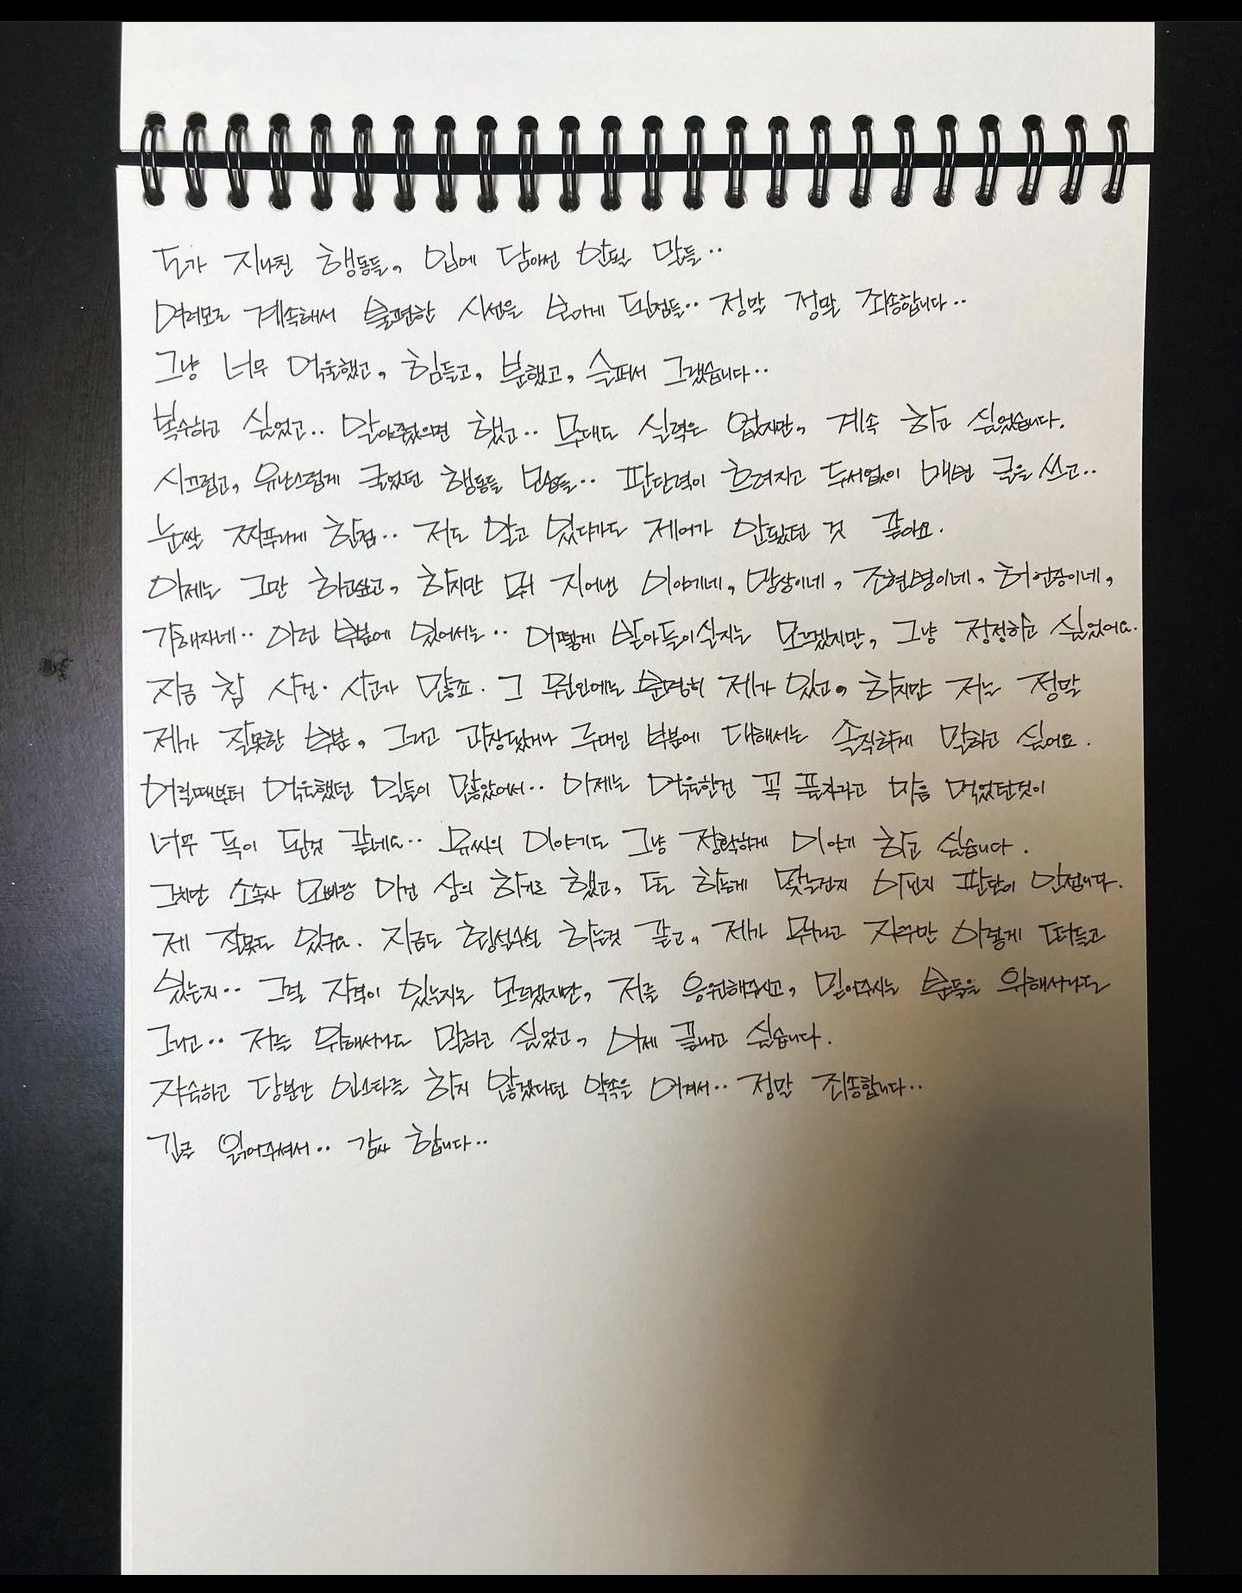 도가 지나친 행동들, 입에 담아선 안될 말들..
여러모로 계속해서 불편한 시선을 보이게 된점들.. 정말 정말 죄송합니다..
그냥 너무 억울했고, 힘들고, 분했고, 슬퍼서 그랬습니다..
복수하고 싶었고.. 알아줬으면 했고.. 무대도 실력은 없지만, 계속 하고 싶었습니다.
시끄럽고, 유난스럽게 굴었던 행동들 모습들.. 판단력이 흐려지고 두서없이 매번 글을 쓰고..
눈쌀 찌푸리게 한점.. 저도 알고 있다가도 제어가 안됐던 것 같아요.
이제는 그만 하고싶고, 하지만 뭐 지어낸 이야기네, 망상이네, 조현병이네, 허언증이네,
가해자네.. 이런 부분에 있어서는.. 어떻게 받아들이실지는 모르겠지만, 그냥 정정하고 싶었어요.
지금 참 사건·사고가 많죠. 그 원인에는 분명히 제가 있고, 하지만 저는 정말
제가 잘못한 부분, 그리고 과장됐거나 루머인 부분에 대해서는 솔직하게 말하고 싶어요.
어릴때부터 억울했던 일들이 많았어서.. 이제는 억울한건 꼭 풀자라고 마음 먹었던것이
너무 독이 된것 같네요.. 유씨의 이야기도 그냥 정확하게 이야기 하고 싶습니다.
그치만 소속사 오빠랑 이건 상의 하기로 했고, 또 하는게 맞는건지 아닌지 판단이 안섭니다.
제 잘못도 있구요. 지금도 횡설수설 하는것 같고, 제가 뭐라고 자꾸만 이렇게 떠들고
있는지.. 그럴 자격이 있는지는 모르겠지만, 저를 응원해주시고, 믿어주시는 분들을 위해서라도
그리고.. 저를 위해서라도 말하고 싶었고, 이제 끝내고 싶습니다.
자숙하고 당분간 인스타를 하지 않겠다던 약속을 어겨서.. 정말 죄송합니다..
긴글 읽어주셔서.. 감사 합니다..